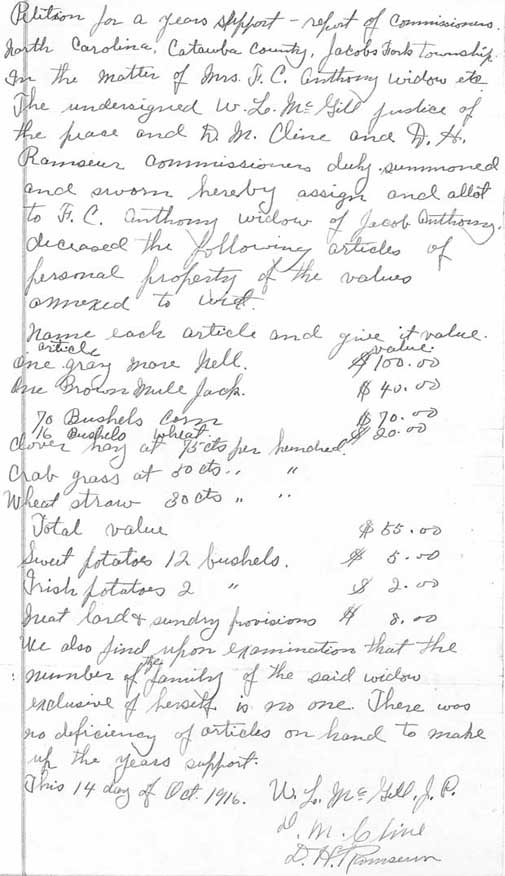 Petition for a years support - report of Commissioners.
North Carolina, Catawba County, Jacobs Fork Township.
In the matter of Mrs. F. C. Anthony widow etc.
The undersigned W. L. Mc Gill justice of
the peace and D. M. Cline and D. H.
Ramseur Commissioners duly summoned
and sworn hereby assign and allot
to F. C. Anthony widow of Jacob Anthony,
deceased the following articles of
personal property of the values
annexed to wit.
Name each article and give it value.
article value.
One gray mare Nell. $100.00
One Brown Mule Jack. $40.00
70 Bushels Corn $70.00
16 Bushels wheat. $20.00
Clover hay at 75 cts per hundred.
Crab grass at 50 cts " "
Wheat straw 30 cts " "
Total value $55.00
Sweet potatoes 12 bushels. $5.00
Irish potatoes 2 " $2.00
Meat lard & sundry provisions $8.00
We also find upon examination that the
number of the family of the said widow
exclusive of herself is no one. There was
no deficiency of articles on hand to make
up the years support.
This 14 day of Oct. 1916. W. L. Mc Gill, J. P.
D. M. Cline
D. H. Ramseur